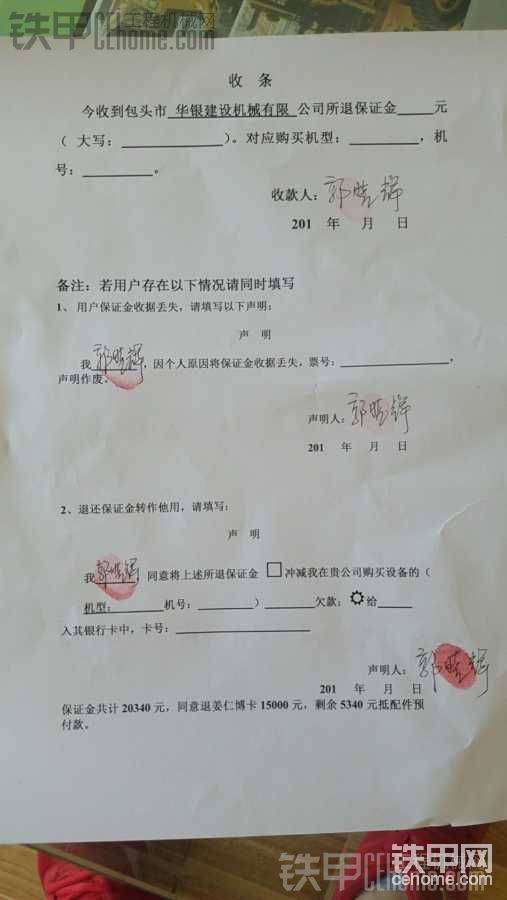 铁甲工程机械网
CEhome.com
收 条
今收到包头市 华银建设机械有限 公司所退保证金_____元
（ 大写：______________）。对应购买机型：__________，机
号：__________。
收款人：郭晓辉
201 年 月 日
备注：若用户存在以下情况请同时填写
1、 用户保证金收据丢失，请填写以下声明：
声 明
我 郭晓辉，因个人原因将保证金收据丢失，票号：________________，
声明作废。
声明人：郭晓辉
201 年 月 日
2、退还保证金转作他用，请填写：
声 明
我 郭晓辉，同意将上述所退保证金 □冲减我在贵公司购买设备的（
机型：________机号：________）________欠款；给_____
入其银行卡中，卡号：____________________
声明人：郭晓辉
201 年 月 日
保证金共计 20340 元，同意退姜仁博卡 15000 元，剩余 5340 元抵配件预
付款。
铁甲网
cehome.com